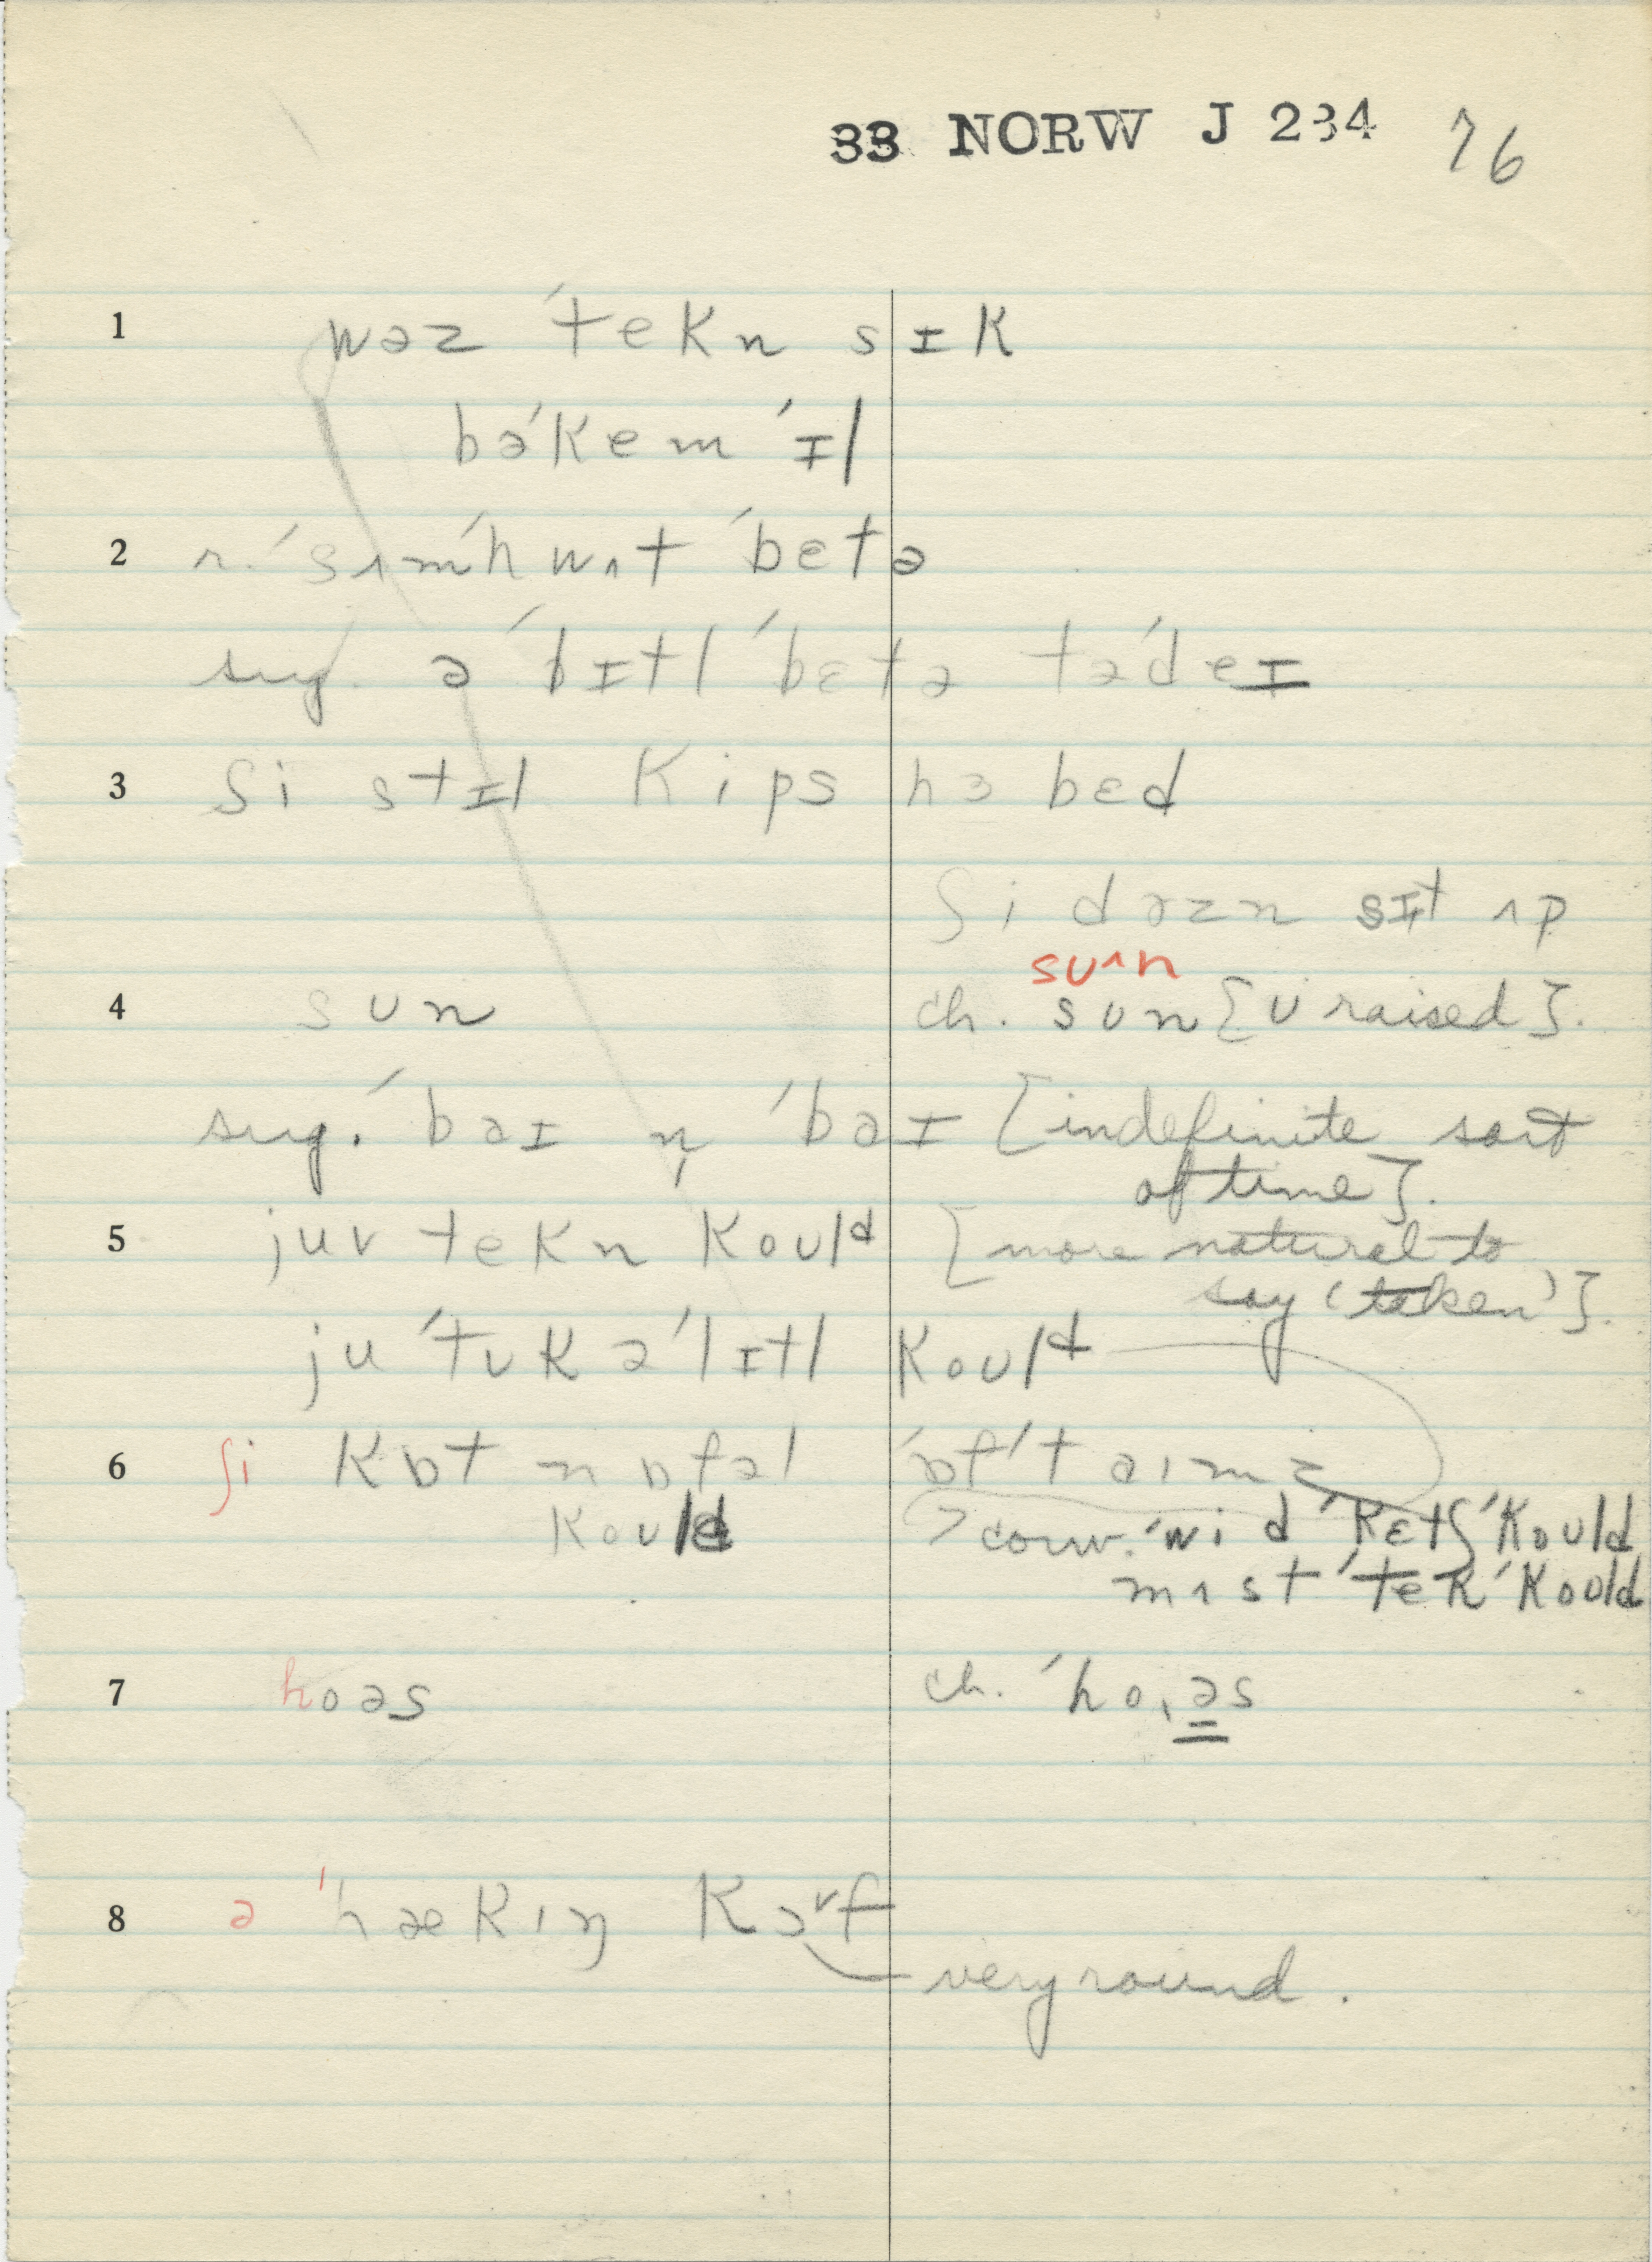 33 NORW J 234 76
1 wəz ˈtekn sɪk
bəˈkem ˈɪl
2 r. ˈsʌmˈhwʌt ˈbɛtə
sug. ə ˈbɪtl ˈbɛtə təˈdeɪ
3 ʃi stɪl kips hɜ bɛd
ʃi dəzn sɪt ʌp
sʊ^n
4 sʊn ch. sʊn [ʊ raised].
sug. ˈbaɪ n̩ ˈbaɪ [indefinite sort
of time].
5 juv tekn koʊld [more natural to
say 'taken'].
ju ˈtʊk ə ˈlɪtl koʊld
6 ʃi kɒt n ɒfəl ˈɒf ˈtaɪmz
koʊld > conv. ˈwi d ˈkɛtʃ ˈkoʊld
mʌst ˈtek ˈkoʊld
7 hoəs ch. ˈhoˌəs
8 ə ˈhækɪŋ kɔ˅f
very round.